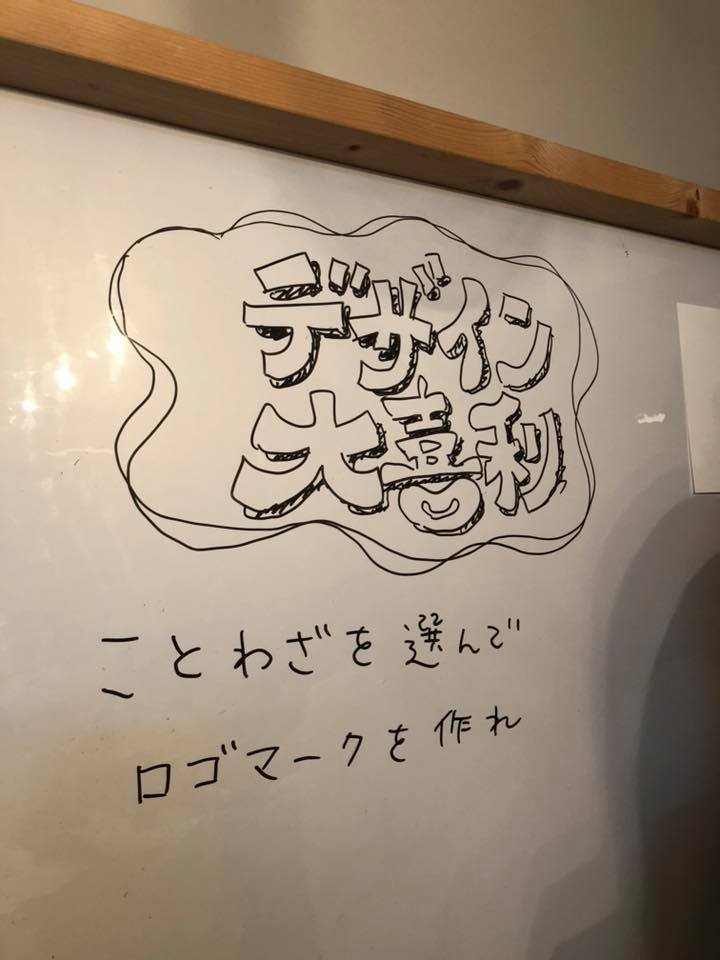 デザイン
大喜利
ことわざを選んで
ロゴマークを作れ